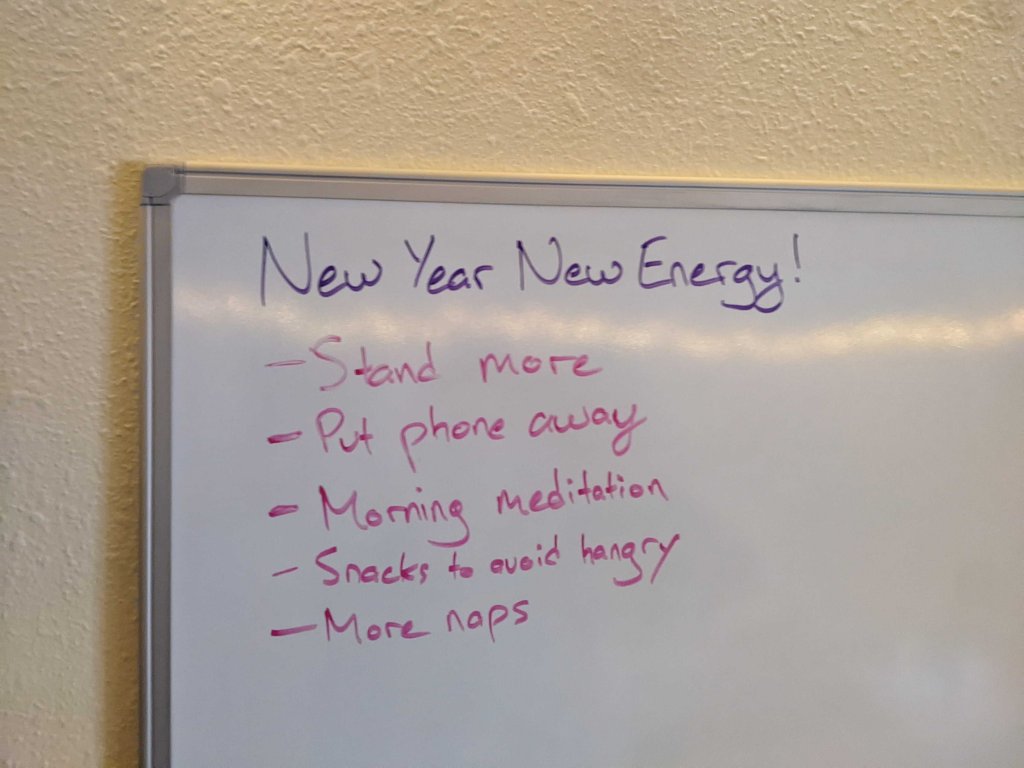 New Year New Energy!
- Stand more
- Put phone away
- Morning meditation
- Snacks to avoid hangry
- More naps